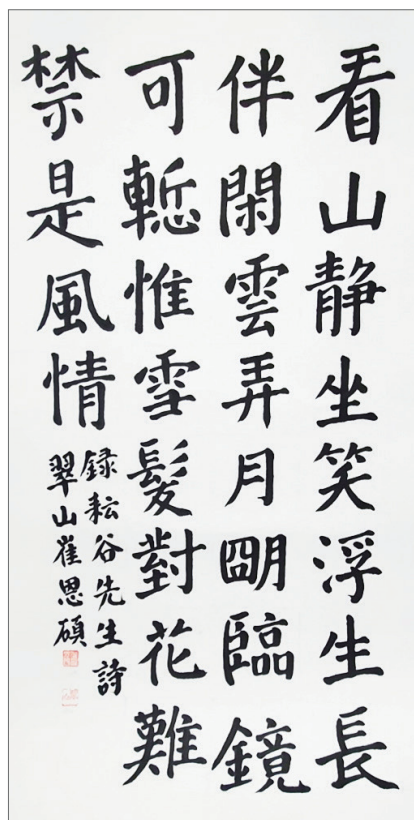 看山静坐笑浮生長
伴閑雲弄月朙臨鏡
可慙惟雪髮對花難
禁是風情
錄耘谷先生詩
翠山崔思碩